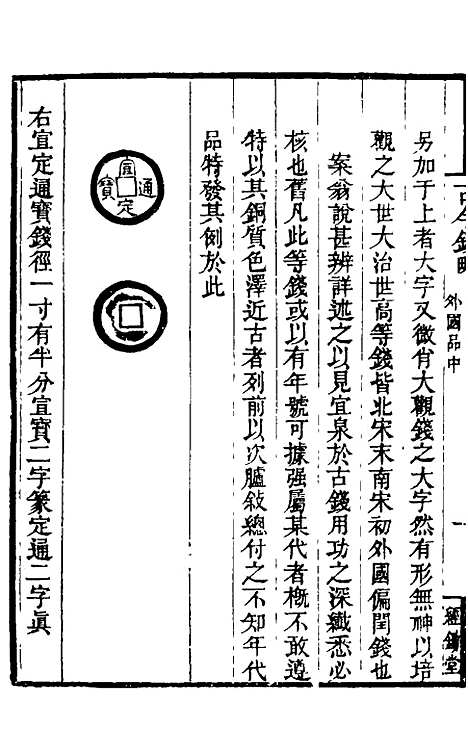 古今錢略
外國品中
一
另加于上者大字又微肖大觀錢之大字然有形無神以培
觀之大世大治世高等錢皆北宋末南宋初外國偏閏錢也
案翁說甚辨詳述之以見宜泉於古錢用功之深纖悉必
核也舊凡此等錢或以有年號可據强屬某代者槪不敢遵
特以其銅質色澤近古者列前以次臚敘總付之不知年代
品特發其例於此
宣定通寶
右宣定通寶錢徑一寸有半分宣寶二字篆定通二字眞